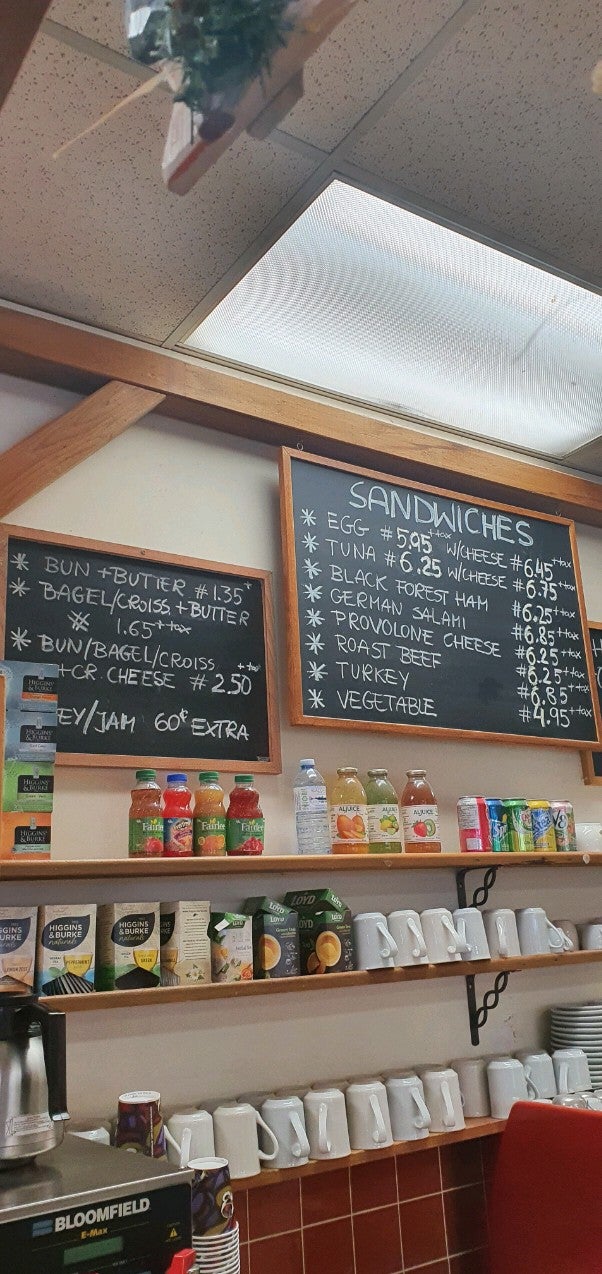 SANDWICHES
* EGG #5.95 W/CHEESE #6.45 ++tax
* TUNA #6.25 ++tax W/CHEESE #6.75 ++tax
* BLACK FOREST HAM #6.25 ++tax
* GERMAN SALAMI #6.85 ++tax
* PROVOLONE CHEESE #6.25 ++tax
* ROAST BEEF #6.25 ++tax
* TURKEY #6.85 ++tax
* VEGETABLE #4.95 ++tax
* BUN + BUTTER #1.35
* BAGEL/CROISS + BUTTER
# 1.65 ++tax
* BUN/BAGEL/CROISS
+CR. CHEESE #2.50
EY/JAM 60¢ EXTRA
HIGGINS
& BURKE
HIGGINS
& BURKE
HIGGINS
& BURKE
HIGGINS
& BURKE
Fairlee
Fairlee
Fairlee
ALJUICE
ALJUICE
HIGGINS
& BURKE
naturals
HIGGINS
& BURKE
naturals
LOYD
LOYD
BLOOMFIELD
E-Max